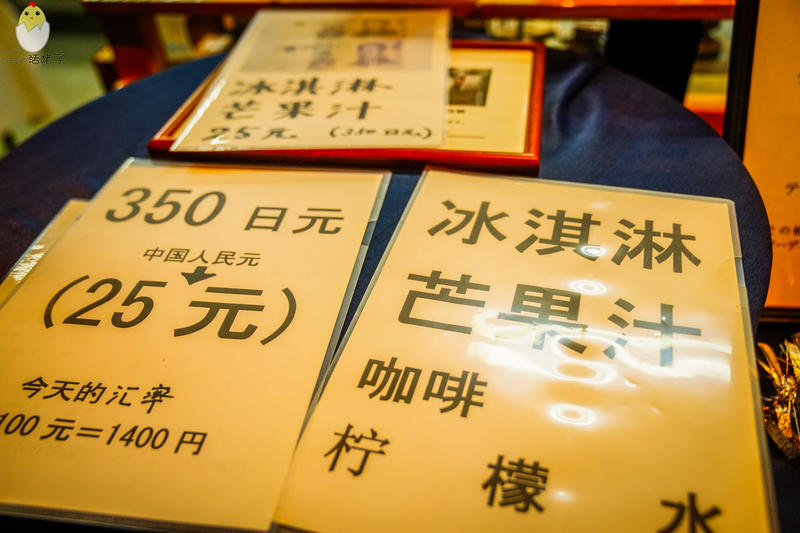 冰淇淋
芒果汁
25元 (350日元)
350 日元
中国人民元
(25 元)
今天的汇率
100 元=1400 円
冰淇淋
芒果汁
咖啡
柠檬水